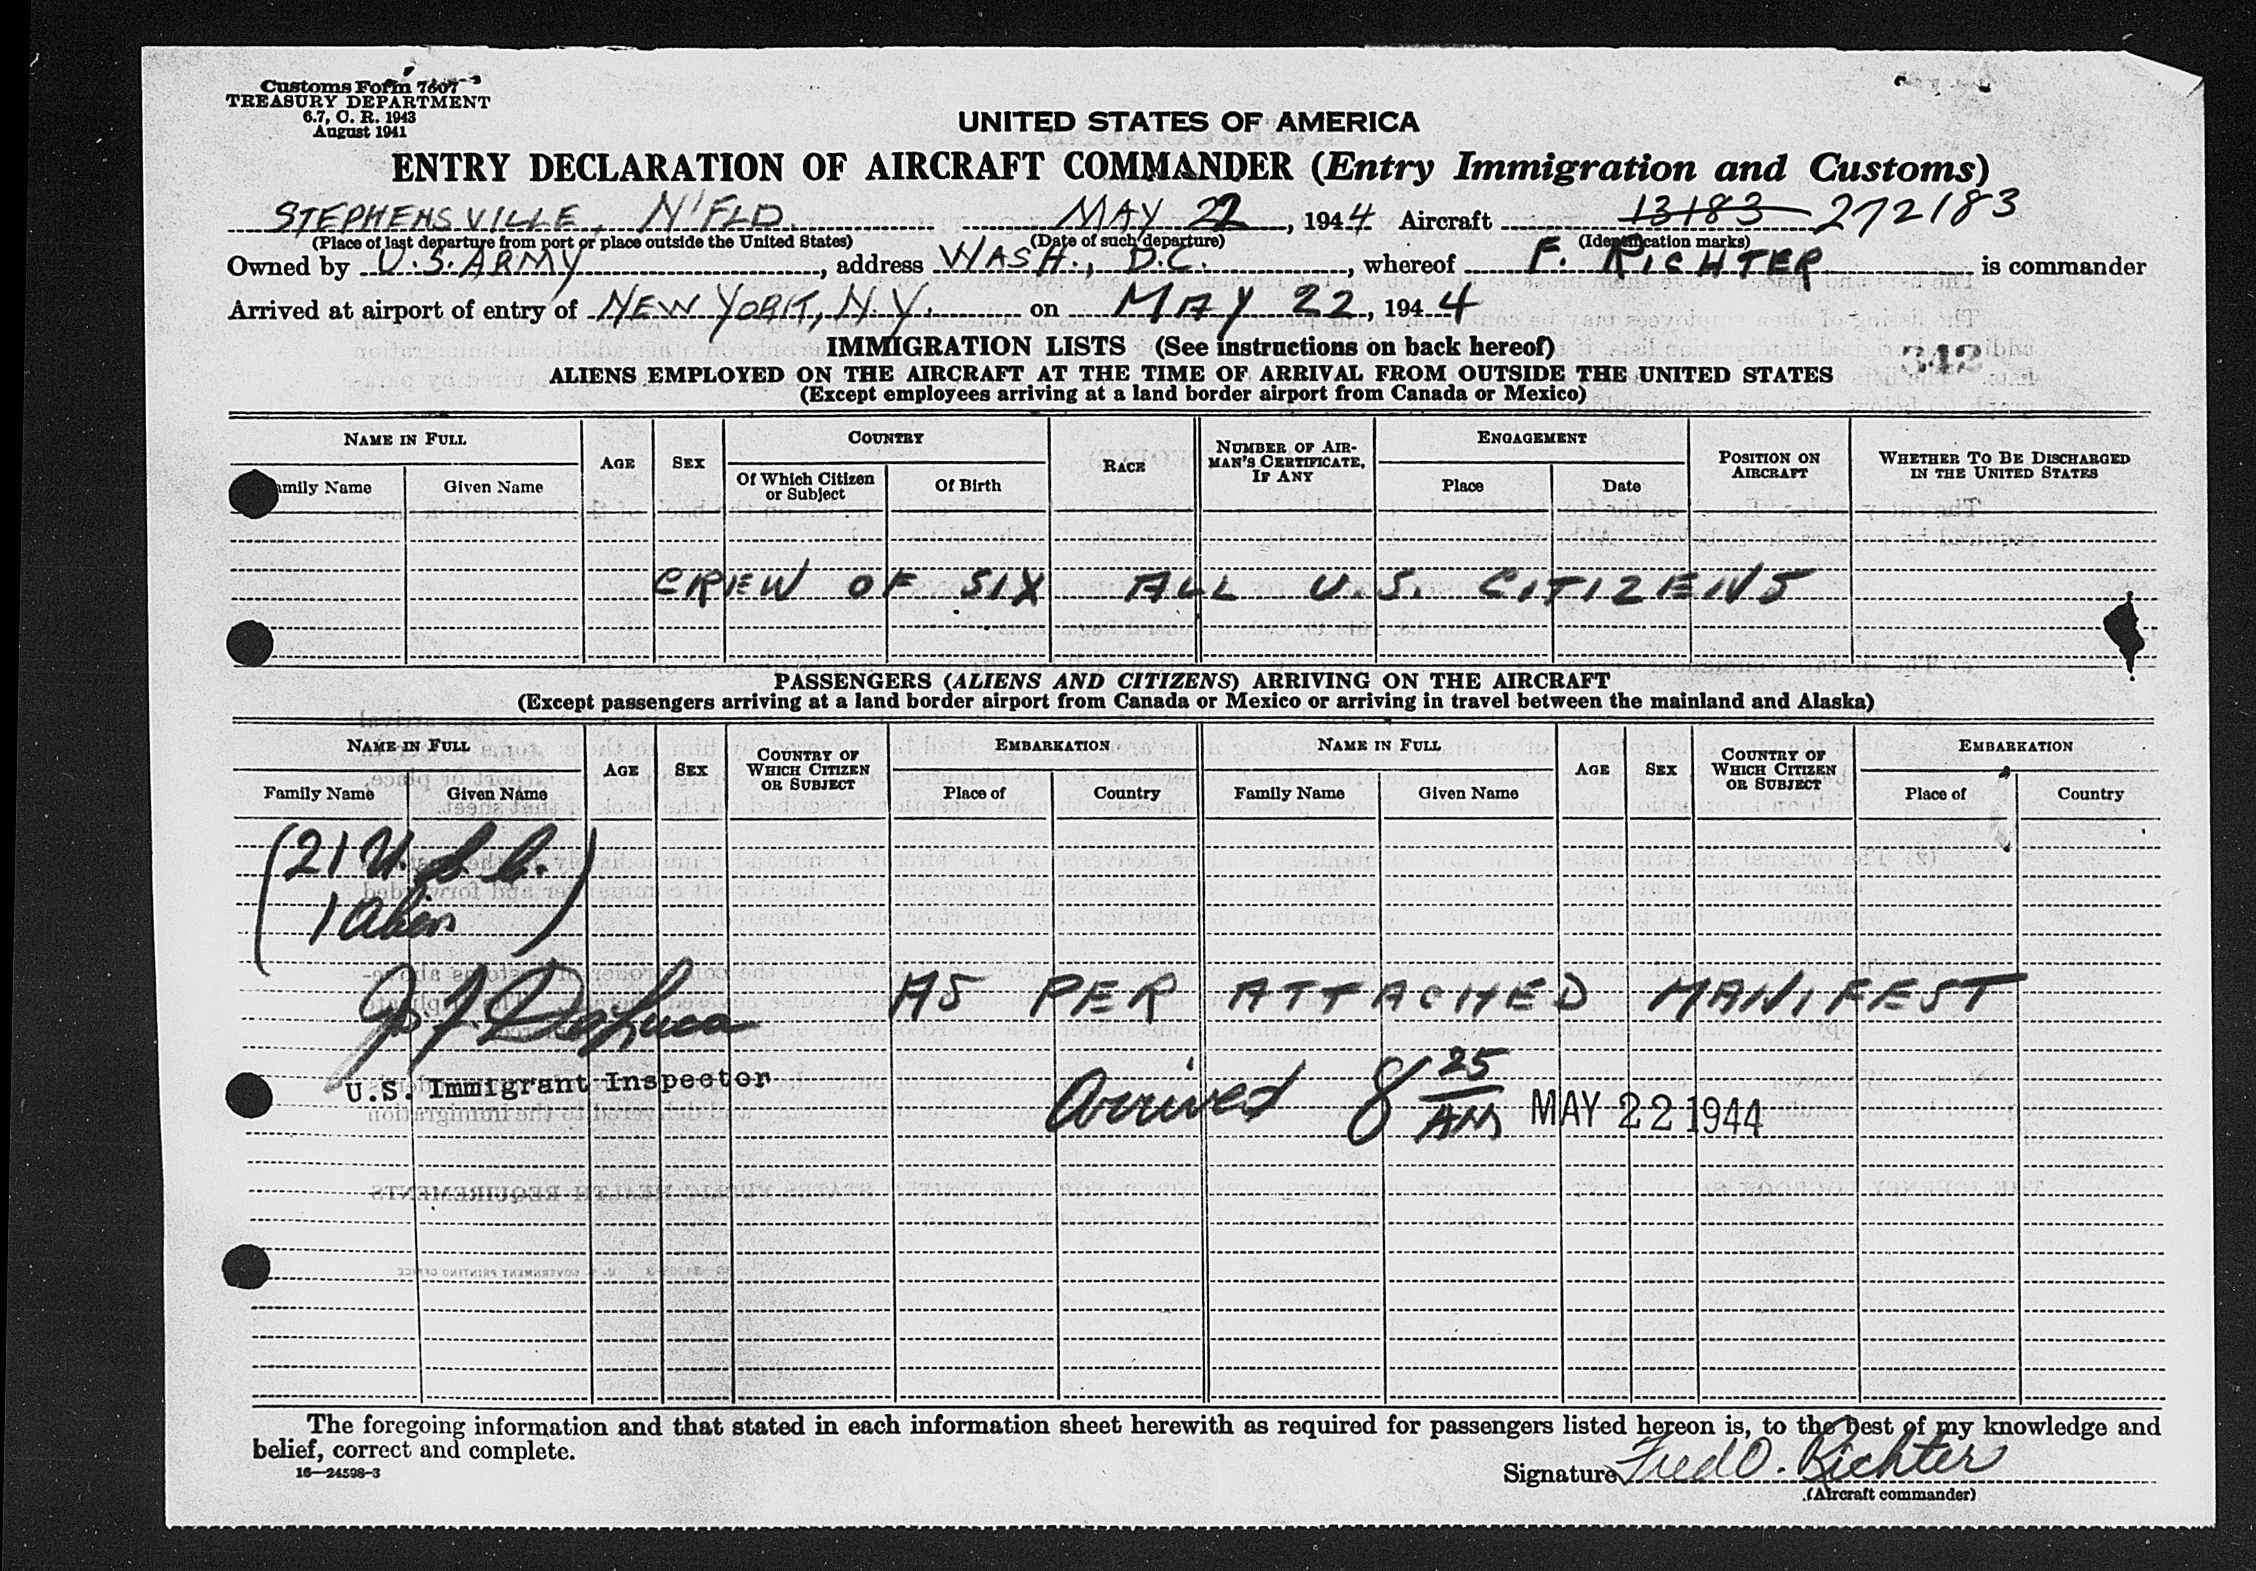 Customs Form 7607
TREASURY DEPARTMENT
6.7, C. R. 1943
August 1941
UNITED STATES OF AMERICA
ENTRY DECLARATION OF AIRCRAFT COMMANDER (Entry Immigration and Customs)
STEPHENSVILLE, N'FLD. MAY 22, 1944 Aircraft 13183 272183
(Place of last departure from port or place outside the United States) (Date of such departure) (Identification marks)
Owned by U.S. ARMY, address WASH., D.C., whereof F. RICHTER is commander
Arrived at airport of entry of NEW YORK, N.Y. on MAY 22, 1944
IMMIGRATION LISTS (See instructions on back hereof)
342
ALIENS EMPLOYED ON THE AIRCRAFT AT THE TIME OF ARRIVAL FROM OUTSIDE THE UNITED STATES
(Except employees arriving at a land border airport from Canada or Mexico)
NAME IN FULL AGE SEX COUNTRY RACE NUMBER OF AIRMAN'S CERTIFICATE, IF ANY ENGAGEMENT POSITION ON AIRCRAFT WHETHER TO BE DISCHARGED IN THE UNITED STATES
mily Name Given Name Of Which Citizen or Subject Of Birth Place Date
CREW OF SIX ALL U.S. CITIZENS
PASSENGERS (ALIENS AND CITIZENS) ARRIVING ON THE AIRCRAFT
(Except passengers arriving at a land border airport from Canada or Mexico or arriving in travel between the mainland and Alaska)
NAME IN FULL AGE SEX COUNTRY OF WHICH CITIZEN OR SUBJECT EMBARKATION NAME IN FULL AGE SEX COUNTRY OF WHICH CITIZEN OR SUBJECT EMBARKATION
Family Name Given Name Place of Country Family Name Given Name Place of Country
(21 U.S.C.
1 Alien)
AS PER ATTACHED MANIFEST
J DeLuca
U.S. Immigrant Inspector
Arrived 8 25 AM MAY 22 1944
The foregoing information and that stated in each information sheet herewith as required for passengers listed hereon is, to the best of my knowledge and
belief, correct and complete.
16—24598-3
Signature Fred O. Richter
(Aircraft commander)